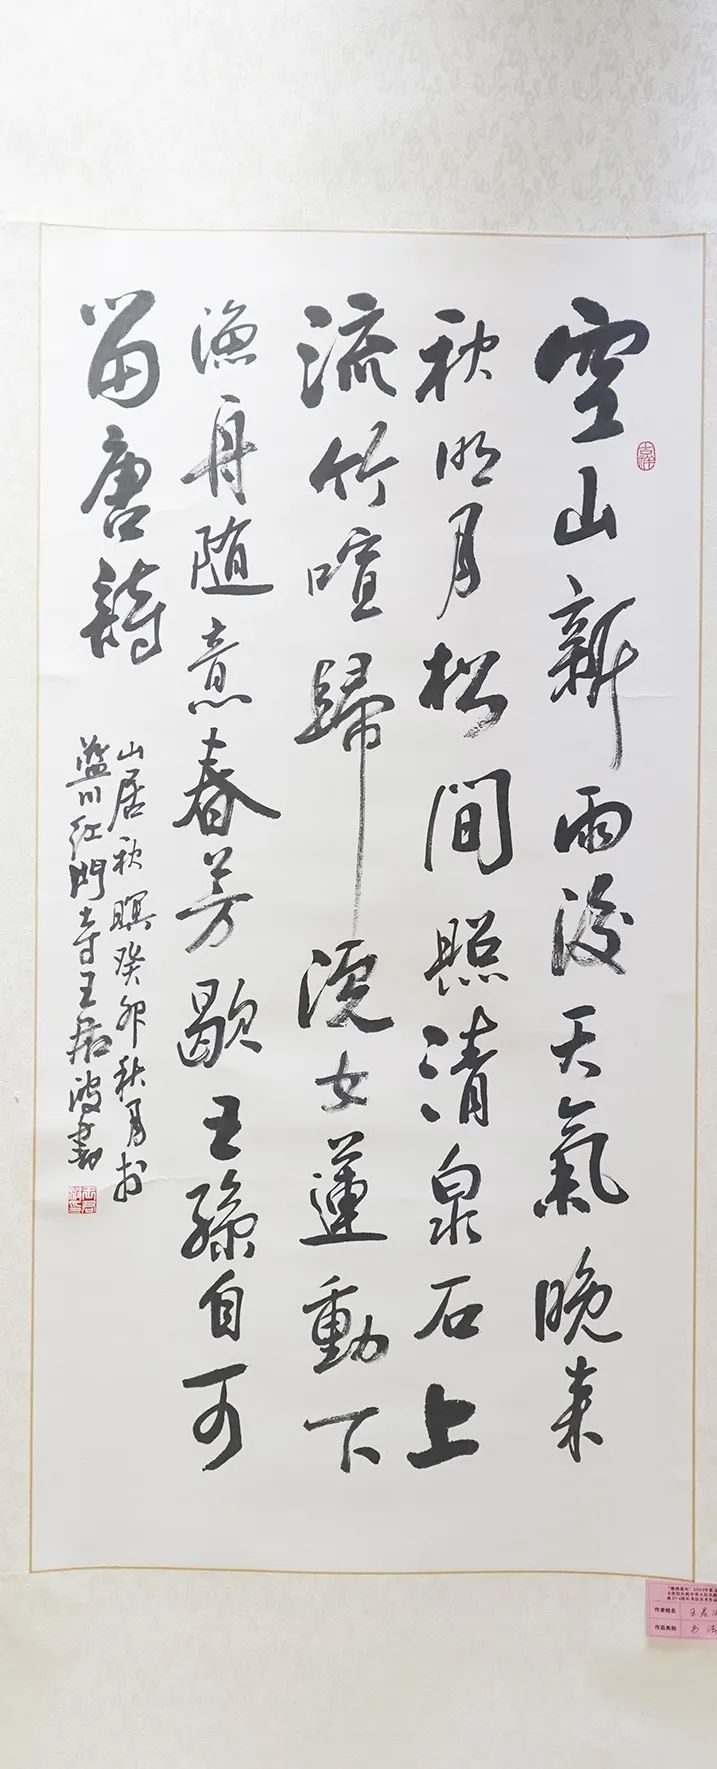 空山新雨後天氣晚来
秋明月松間照清泉石上
流竹喧歸浣女蓮動下
渔舟随意春芳歇王孫自可
留唐詩
山居秋暝癸卯秋月於
蓝川红門寺王君波書
吉祥
作者姓名 王君
作品类别 书法